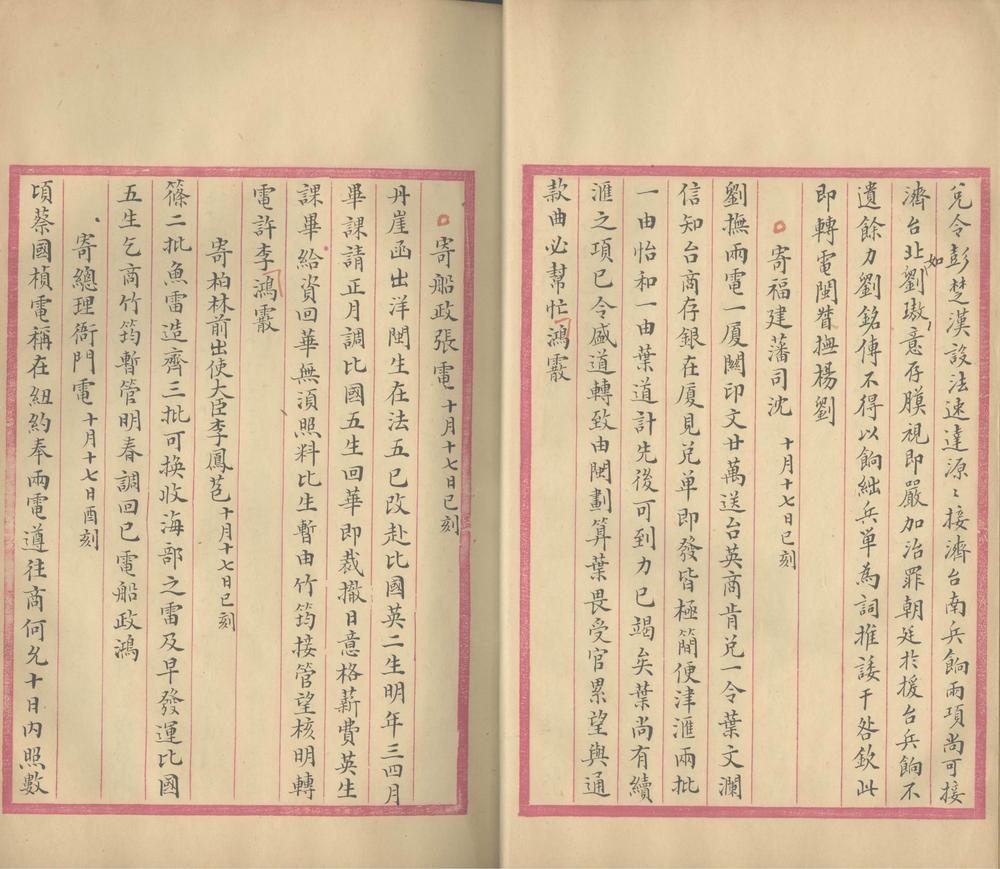 兌令彭楚漢設法速達源〻接濟台南兵餉兩項尚可接
濟台北如劉璈意存膜視即嚴加治罪朝廷於援台兵餉不
遺餘力劉銘傳不得以餉絀兵單為詞推諉干咎欽此
即轉電閩督撫楊劉
寄福建藩司沈 十月十七日巳刻
劉撫兩電一廈關印文廿萬送台英商肯兌一令葉文瀾
信知台商存銀在廈見兌單即發皆極簡便津滙兩批
一由怡和一由葉道計先後可到力已竭矣葉尚有續
滙之項已令盛道轉致由閩劃算葉畏受官累望與通
款曲必幫忙鴻霰
寄船政張電 十月十七日巳刻
丹崖函出洋閩生在法五已改赴比國英二生明年三四月
畢課請正月調比國五生回華即裁撤日意格薪費英生
課畢給資回華無須照料比生暫由竹筠接管望核明轉
電許李鴻霰
寄柏林前出使大臣李鳳苞 十月十七日巳刻
篠二批魚雷造齊三批可換收海部之雷及早發運比國
五生乞商竹筠暫管明春調回已電船政鴻
寄總理衙門電 十月十七日酉刻
頃蔡國楨電稱在紐約奉兩電遵往商何允十日内照數